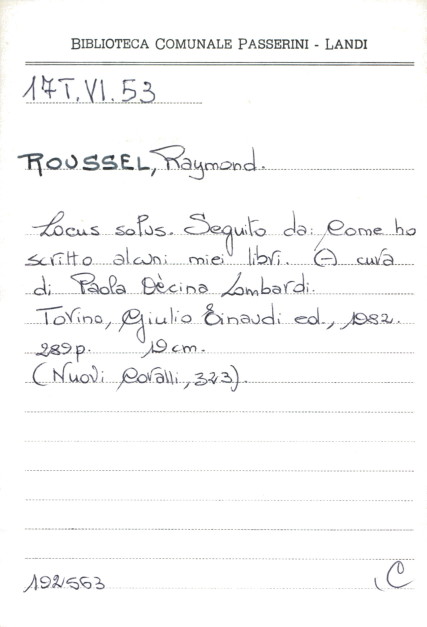 BIBLIOTECA COMUNALE PASSERINI - LANDI
17T.VI.53
ROUSSEL, Raymond.
Locus solus. Seguito da: Come ho
scritto alcuni miei libri. A cura
di Paola Dècina Lombardi.
Torino, Giulio Einaudi ed., 1982.
289 p. 19 cm.
(Nuovi Coralli, 323).
192563
C